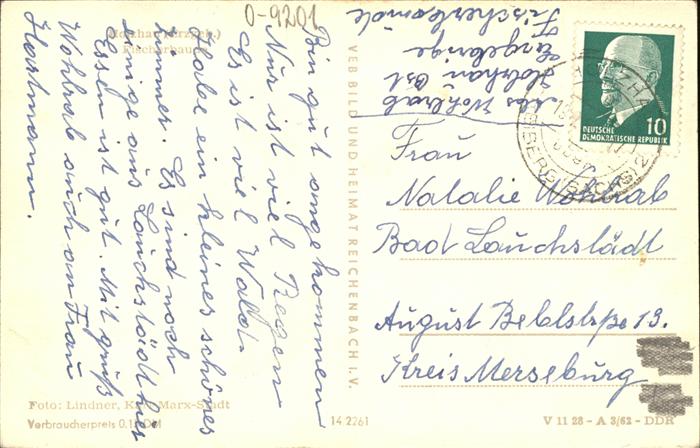 O-9201
Holzhau (Erzgeb.)
Fischerbaude
Bin gut angekommen
Nur ist viel Regen
Es ist viel Wald.
Habe ein kleines schönes
Zimmer. Es sind noch
einige aus Lauchstädt hier
Essen ist gut. Mit gruß
Wohlrab auch an Frau
Hartmann.
Abs Wohlrab
Holzhau Ost
Erzgebirge
Fischerbaude
VEB BILD UND HEIMAT REICHENBACH I. V.
DEUTSCHE
DEMOKRATISCHE REPUBLIK
10
Frau
Natalie Wohlrab
Bad Lauchstädt
August Beblstrpe 13.
Kreis Merseburg
Foto: Lindner, Karl-Marx-Stadt
Verbraucherpreis 0.15 DM
14.2261
V 11 28 – A 3/62 – DDR